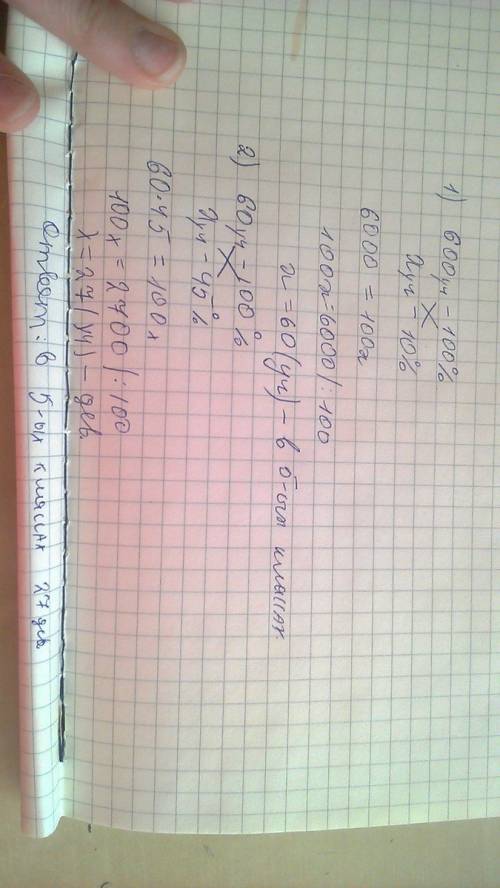 1) 600уч – 100%
xуч – 10%
6000 = 100x
100x = 6000 | : 100
x = 60 (уч) – в 5-ых классах
2) 60уч – 100%
xуч – 45%
60·45 = 100x
100x = 2700 | : 100
x = 27 (уч) – дев
Ответ: в 5-ых классах 27 дев